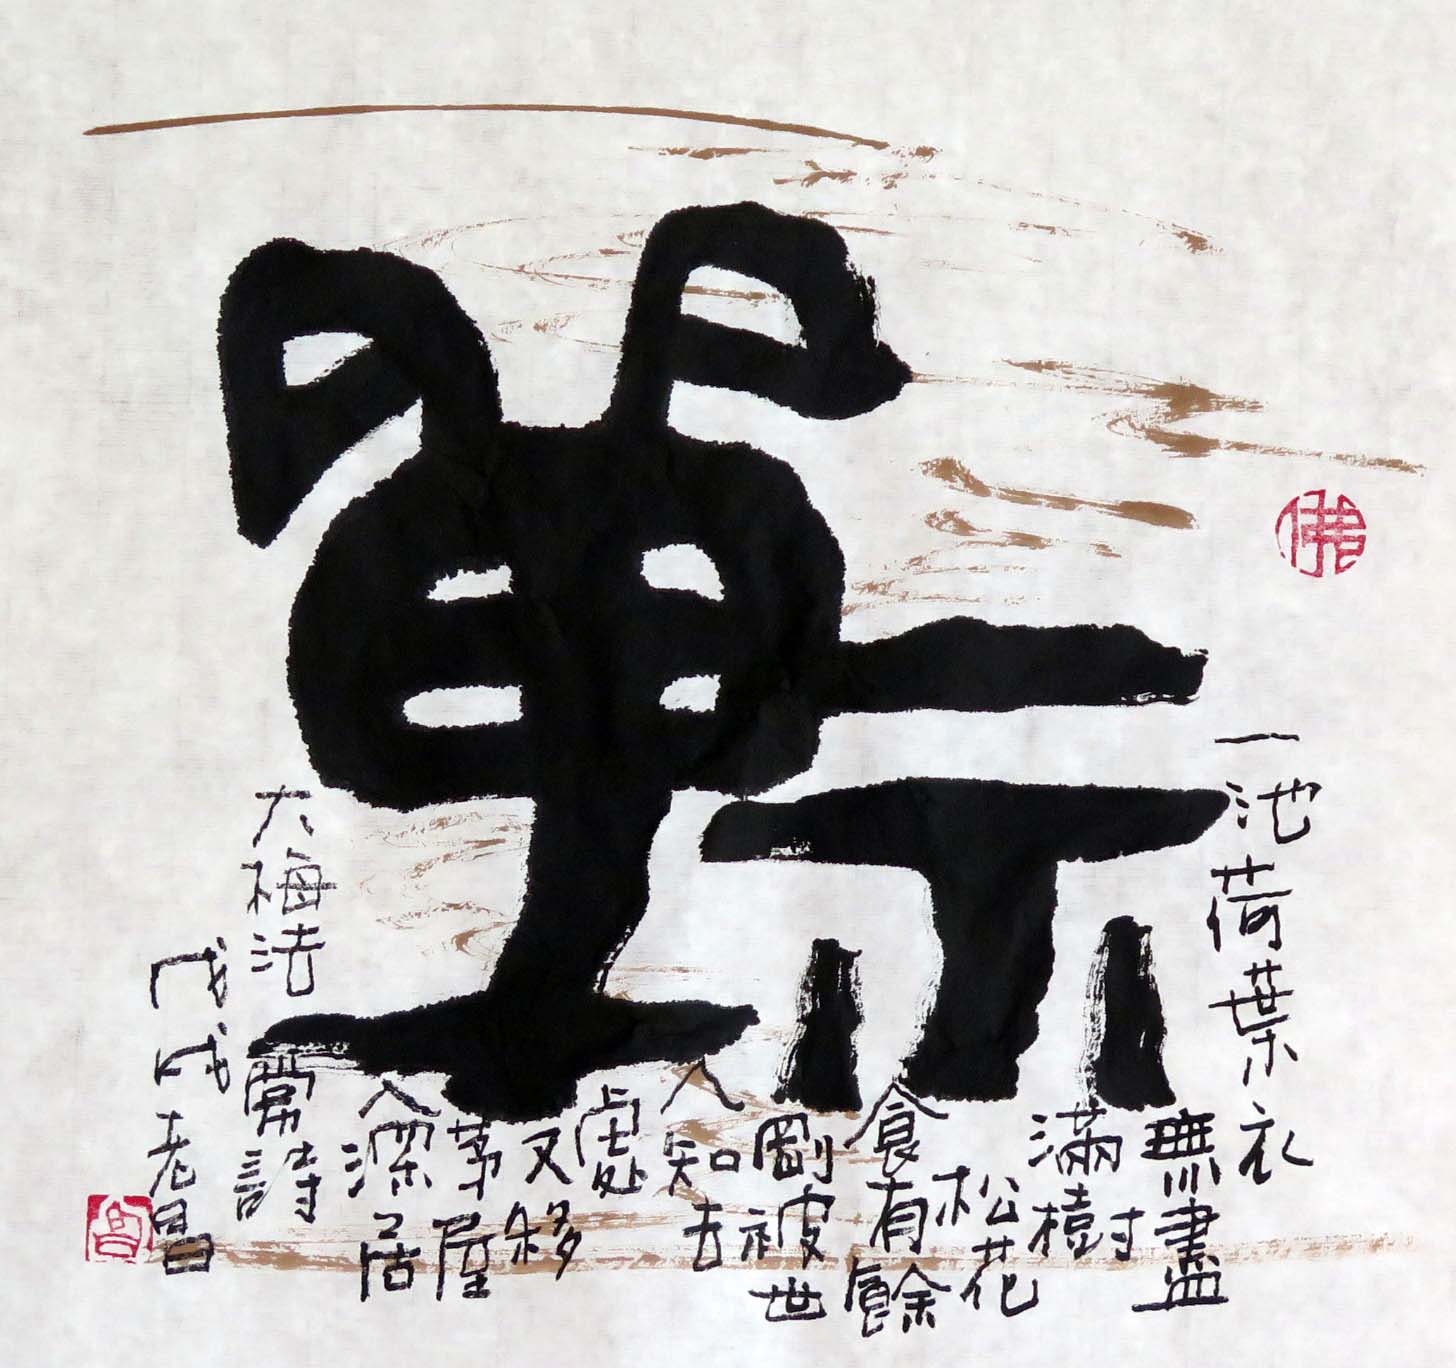 禪
佛
一池荷葉衣
無盡
滿樹
松花
食有餘
剛被世
人知去
處
又移
茅屋
入深居
大梅法常詩
戊戌老昌
昌